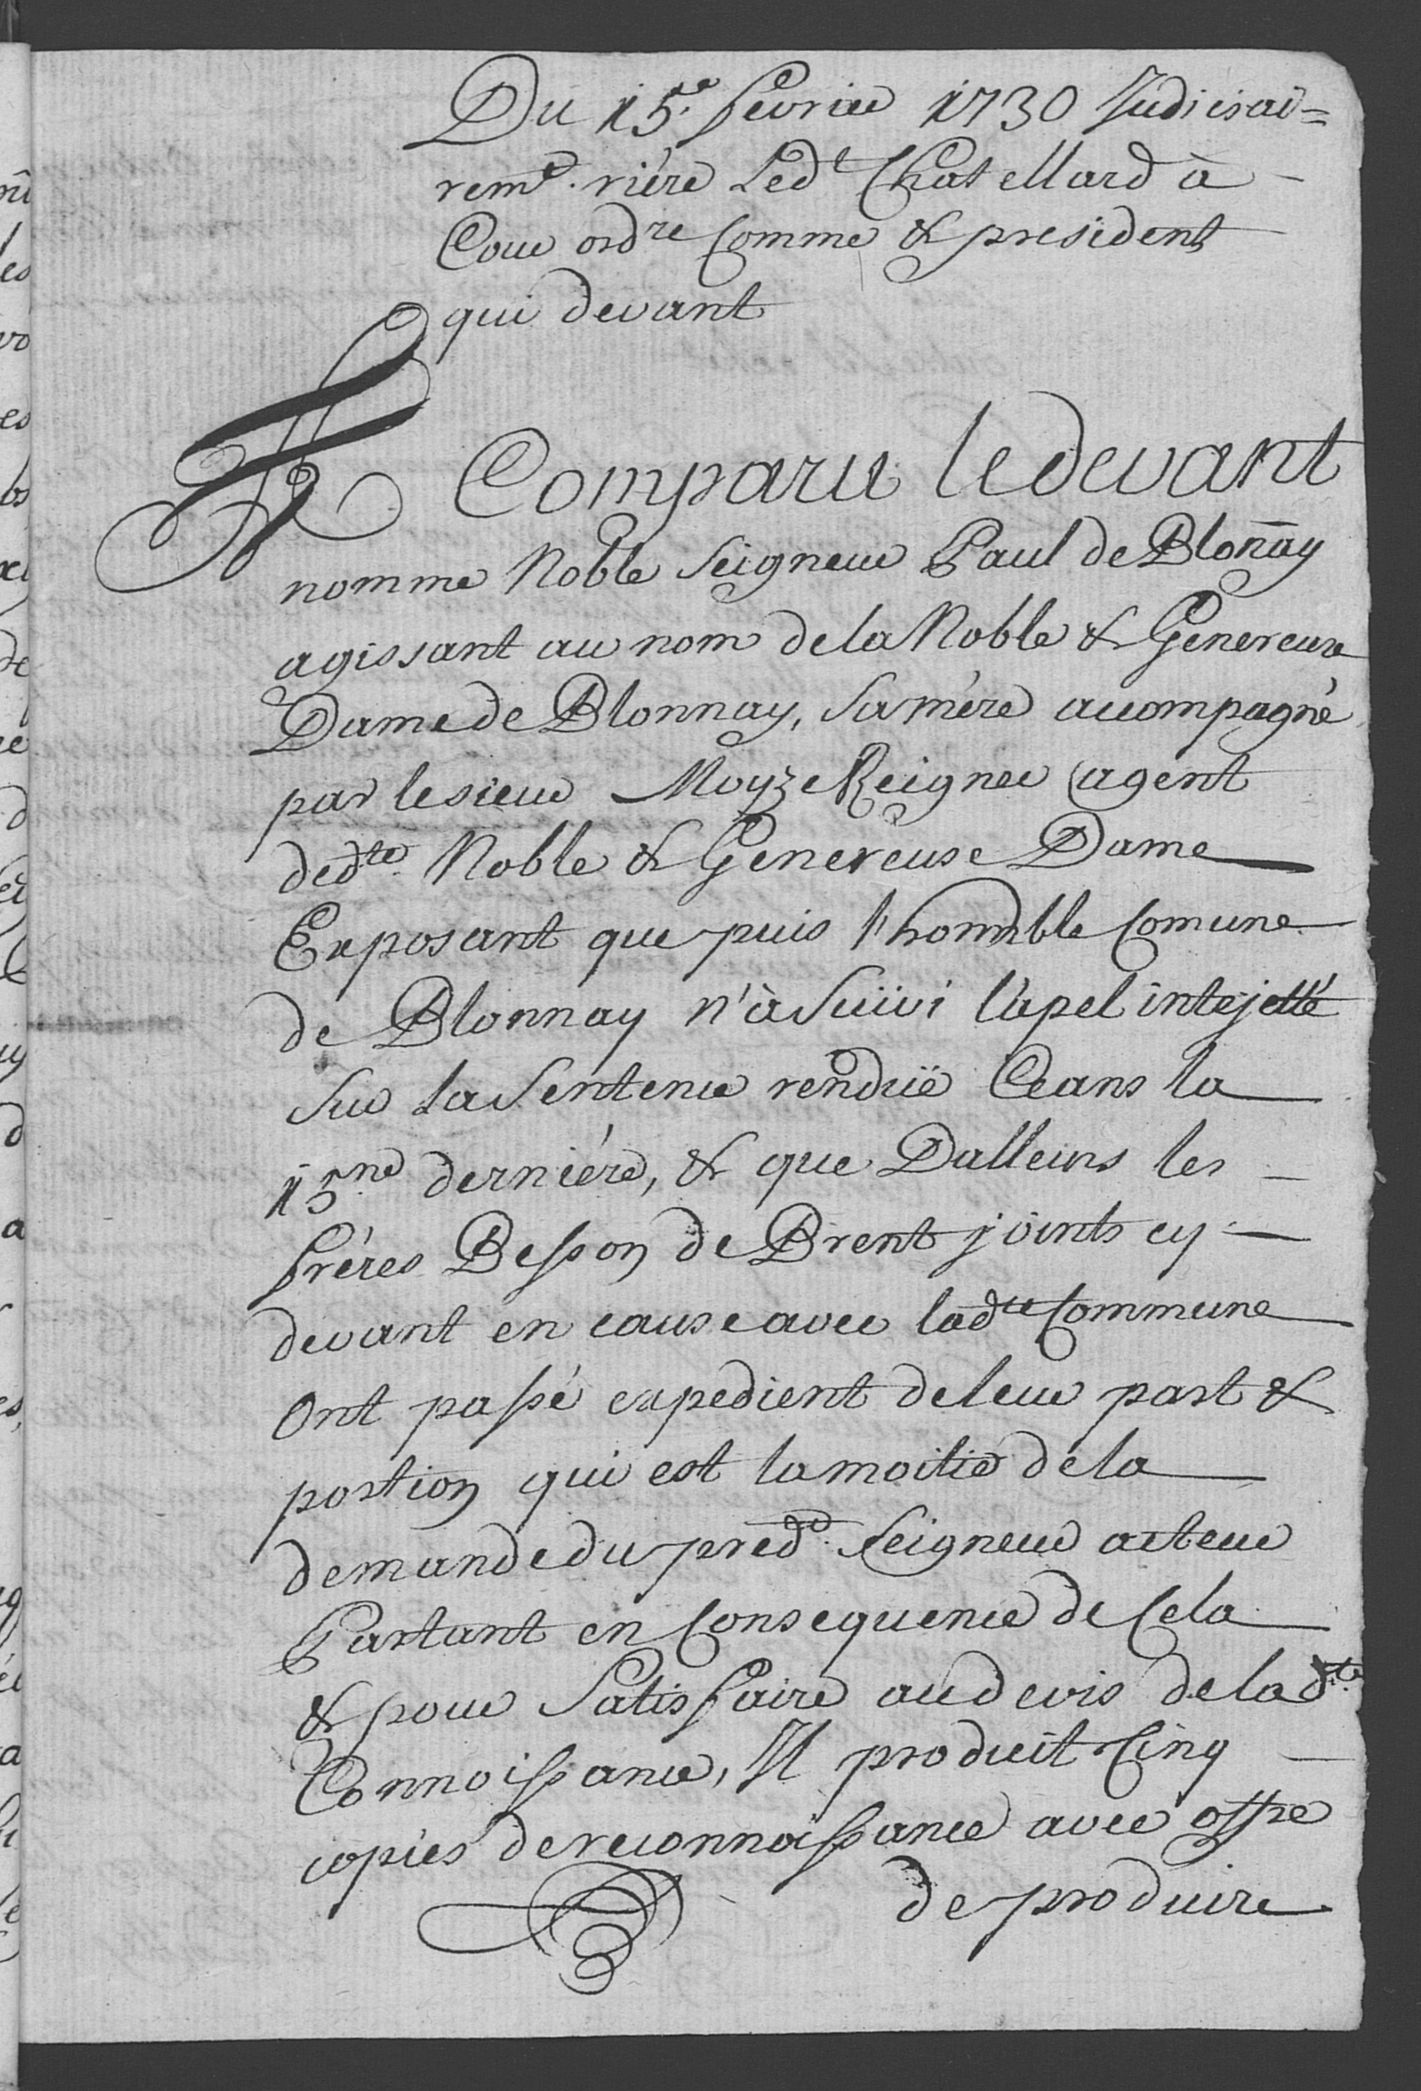 Du 15.e fevrier 1730 Judiciai=
remt. riére Ledt Chatellard à
Cour ordre Comme & president
qui devant
A Comparu ledevant
nomme Noble Seigneur Paul de Blonay
agissant au nom de la Noble & Genereuse
Dame de Blonnay, sa mére acompagné
par le sieur Moyze Reignee agent
dedte. Noble & Genereuse Dame
Exposant que puis l'honnble Comune
de Blonnay n'à Suivi l'apel intejetté
sur La Sentence renduë Ceans la
15ne derniére, & que Dalleurs les
fréres Besson de Brent joints cy
devant en cause avec ladte Commune
Ont passé expedient deleur part &
portion qui est la moitié dela
demande du predt. Seigneur acteur
Partant en Consequence de Cela
& pour Satisfaire au devis de ladte.
Connoissance, Il produit Cinq
copies de reconnoissance avec offre
de produire